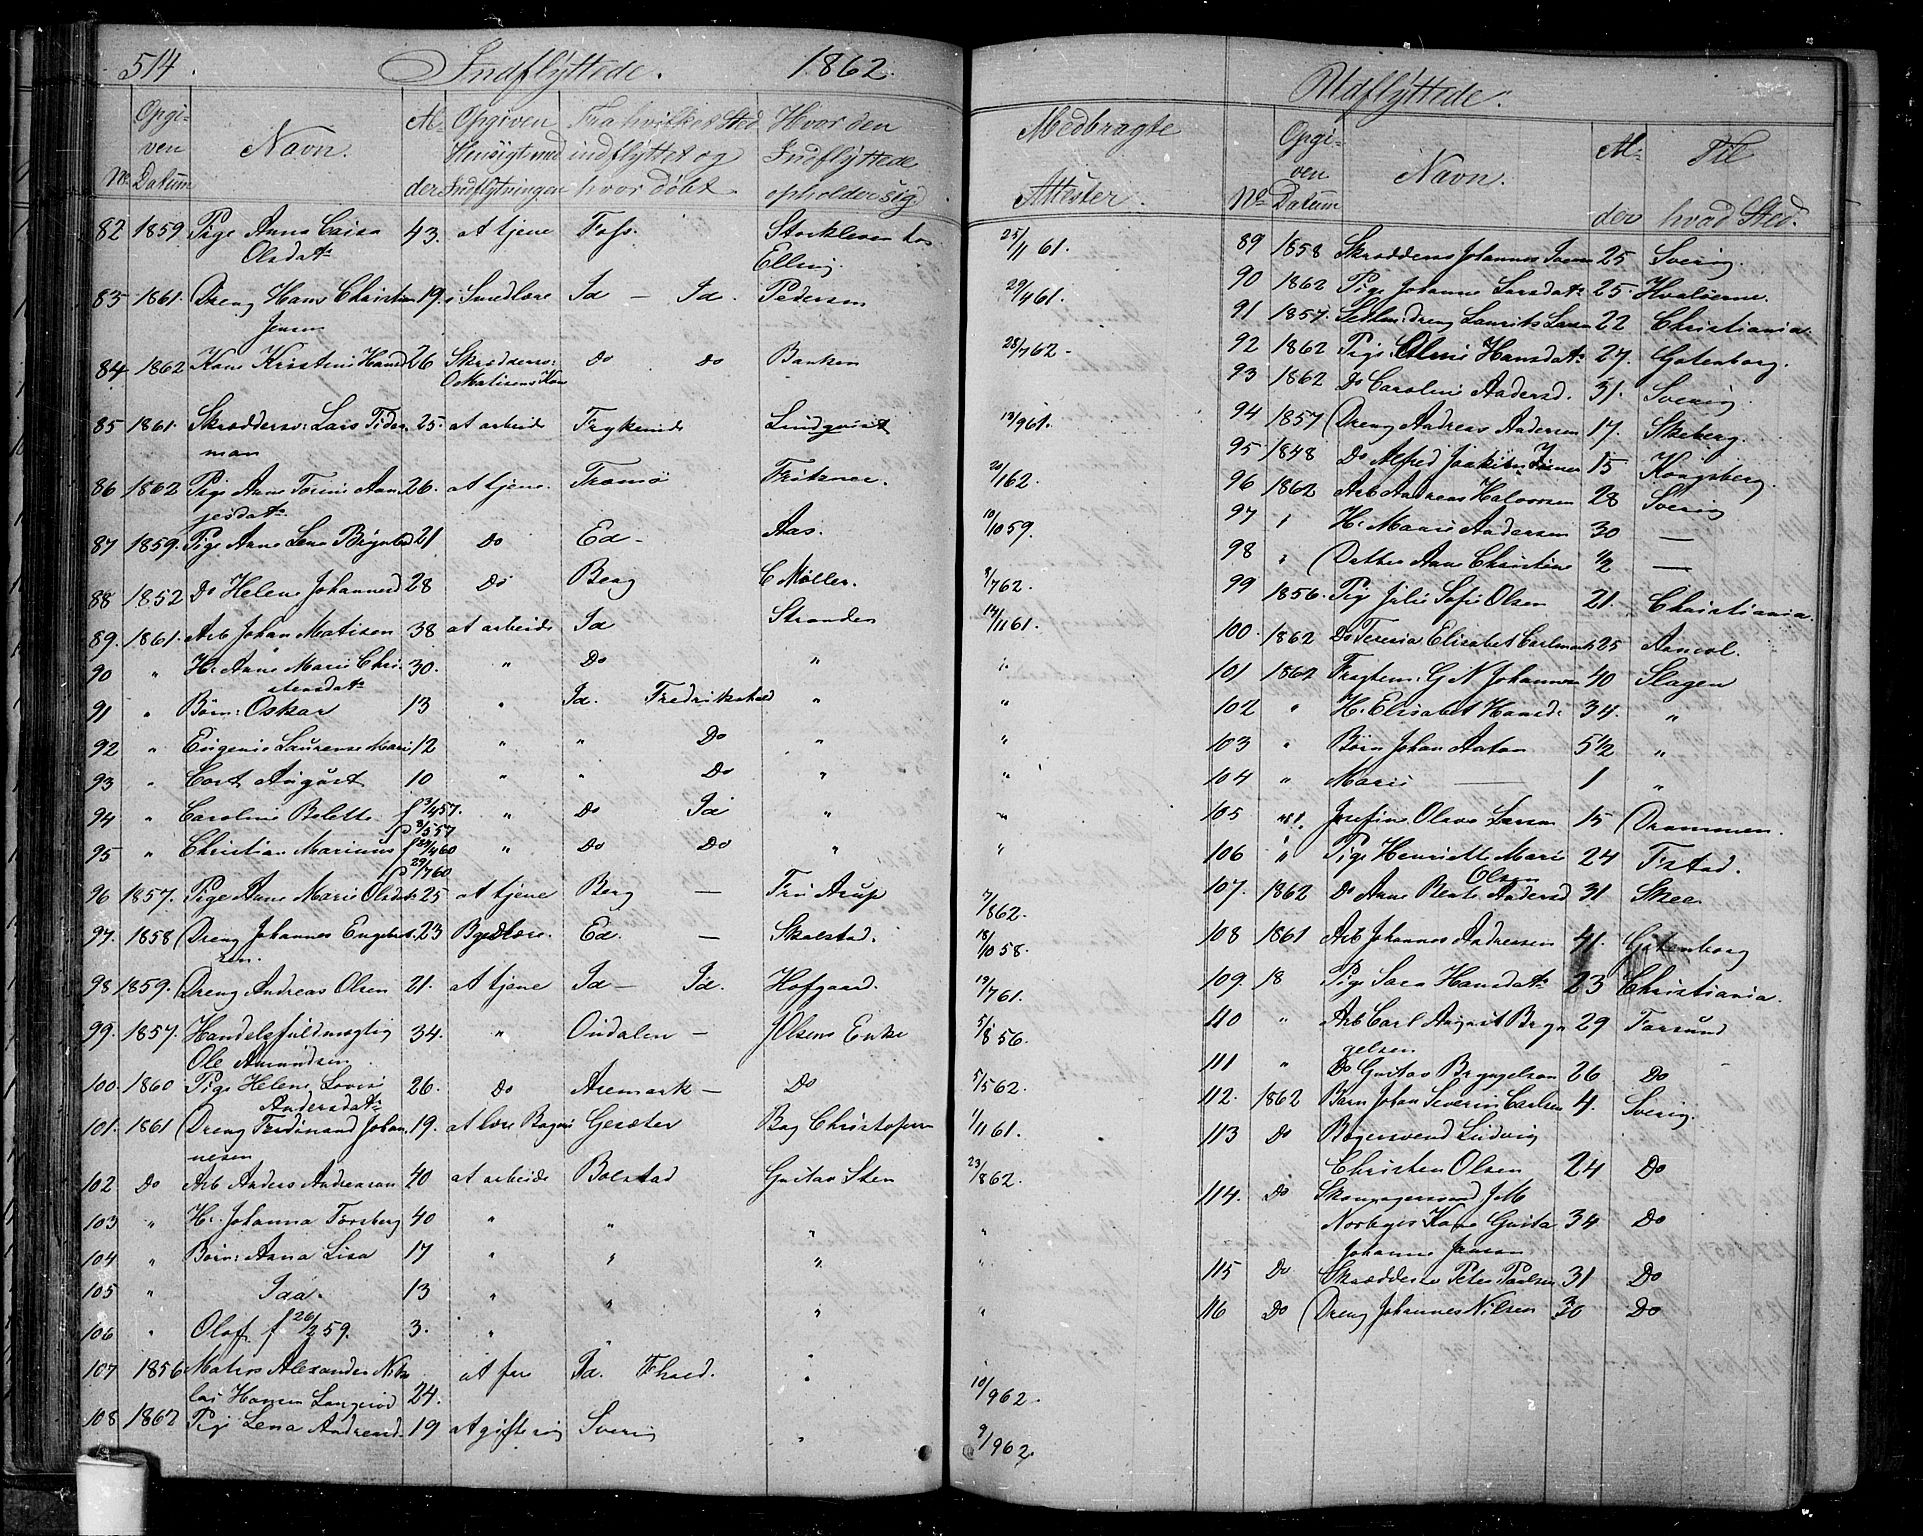 514. Indflyttede. 1862.
No Opgiven Datum Navn. Alder Opgiven Hensigt med Indflytningen Fra hvilket Sted indflyttet og hvor døbt Hvor den Indflyttede opholder sig Medbragte Attester.
82 1859 Pige Anna Caisa 43. At tjene Foss. hos 25/11 61.
Olsdatr Elling
83 1861. Dreng Hans Christian 19. i Smedlære Id — Id. Pedersen 29/4 61.
Jensen
84 1862 Kone Kristine Hansd 26 Skrædders: Do Do Banken 28/7 62 -
85 1861. Skræddersv: Lars Tider 25. at arbeide Lindqvist 13/9 61.
man
86 1862 Pige Anne Torine Aan 26. At tjene. Tromø Fritzner. 20/1 62.
jesdatr
87 1859. Pige Anne Lena 21 Do Ed - Aas. 10/10 59.
88 1852 Do Helene Johannesd 28 Do Berg C Møller. 8/7 62.
89. 1861. Arb Johan Matisen 38 at arbeide Id Stranden 12/11 61.
90 " H: Anne Marie Chri 30. " Do " "
stensdatr
91 " Børn: Oskar 13 " Id. Fredrikshald " "
92 " Eugenie Laurense Marie 12 " " Do " "
93 " Carl August 10 " " Do " "
94 " Caroline Belette f 3/4 57. " Do Id " "
D 3/5 57
95 " Christian Marinus f 24/4 60 " Do Do " "
D 29/7 60
96 1857. Pige Anne Marie Olsdatr 25 at tjene Berg — Fru Arup 7/8 62.
97. 1858 Dreng Johannes Engebret 23 Ed. — Skolstad. 18/10 58.
sen.
98 1859. Dreng Andreas Olsen 21. At tjene Id — Id. Hofgaard. 19/7 61.
99. 1857. Handelsfuldmægtig 34. " Oudalen — Olsens Enke 5/8 56.
Ole Amundsen
100. 1860 Pige Helene Lovise 26. Do Aremark — Do 5/5 62.
Andersdatr
101. 1861 Dreng Ferdinand Johan 19. at lære Bager Gesæter Bag Christofersen 1/11 61.
nesen
102 Do Arb Anders Andreasen 40 at arbeide Bolstad Gustav Sten 23/8 62.
103 " H: Johanna Forsberg 40 " " " "
104 " Børn: Anna Lisa 17 " " " "
105 " Ida. 13 " " "
106 " Olof f 26/2 59. 3. " " " "
107 1856 Matros Alexander Niko At fare Id. Fhald. " 10/9 62.
lai Hansen 24.
108 1862 Pige Lena Andreasd. 19 At gifte sig Sverig " 9/9 62.
Udflyttede.
No Opgiven Datum Navn. Alder Til hvad Sted.
89 1858 Skræddersv Johannes 25 Sverig
90 1862 Pige Johanne Larsdatr 25. Hvaløerne.
91 1857. dreng Laurits Larsen 22 Christiania.
92 1862 Pige Oline Hansdatr 27. Gotenborg.
93 1862 Do Caroline Andersd. 31. Sverig
94 1857 Dreng Andreas Andersen 17. Skeberg.
95 1848 Do Alfred 15. Kongsberg.
96 1862 Arb Andreas Halvorsen 28 Sverig
97 " H: Marie Andersen 30 —
98 " Datter Anne Christine 1/2 —
99 1856. Pige Julie Sofie Olsen 21. Christiania.
100. 1862 Do Teresia Elisabet 25
101 1862 Fragtem: G N Johannesen 40 Slagen
102 " H: Elisabet Hansd: 34. "
103 " Børn Johan Anton 5 1/2 "
104 " Marie — 1 "
105 Josefine Olava Larsen 15 Drammen.
106 " Pige Henriette Marie 24 Fistad.
Olsen
107. 1862 Do Anne Beate Andersd 31 Skee.
108 1861 Arb Johannes Andreasen 41. Gotenborg
109. 18 Pige Sara Hansdatr 23 Christiania.
110 " Arb Carl August Bryn 29 Farsund
gelsen
111 " Do Gustav Bryngelsen 26 Do
112. 1862 Barn Johan Severin Carlsen 4. Sverig.
113 Do Bagersvend Ludvig
Christen Olsen 24 Do
114. Do Skomagersvend J M
Norbergs Kone Gusta 34 Do
Johanne Jansen
115 Do Skræddersv Peter Paulsen 31 Do
116 Do Dreng Johannes Nilsen 30 Do